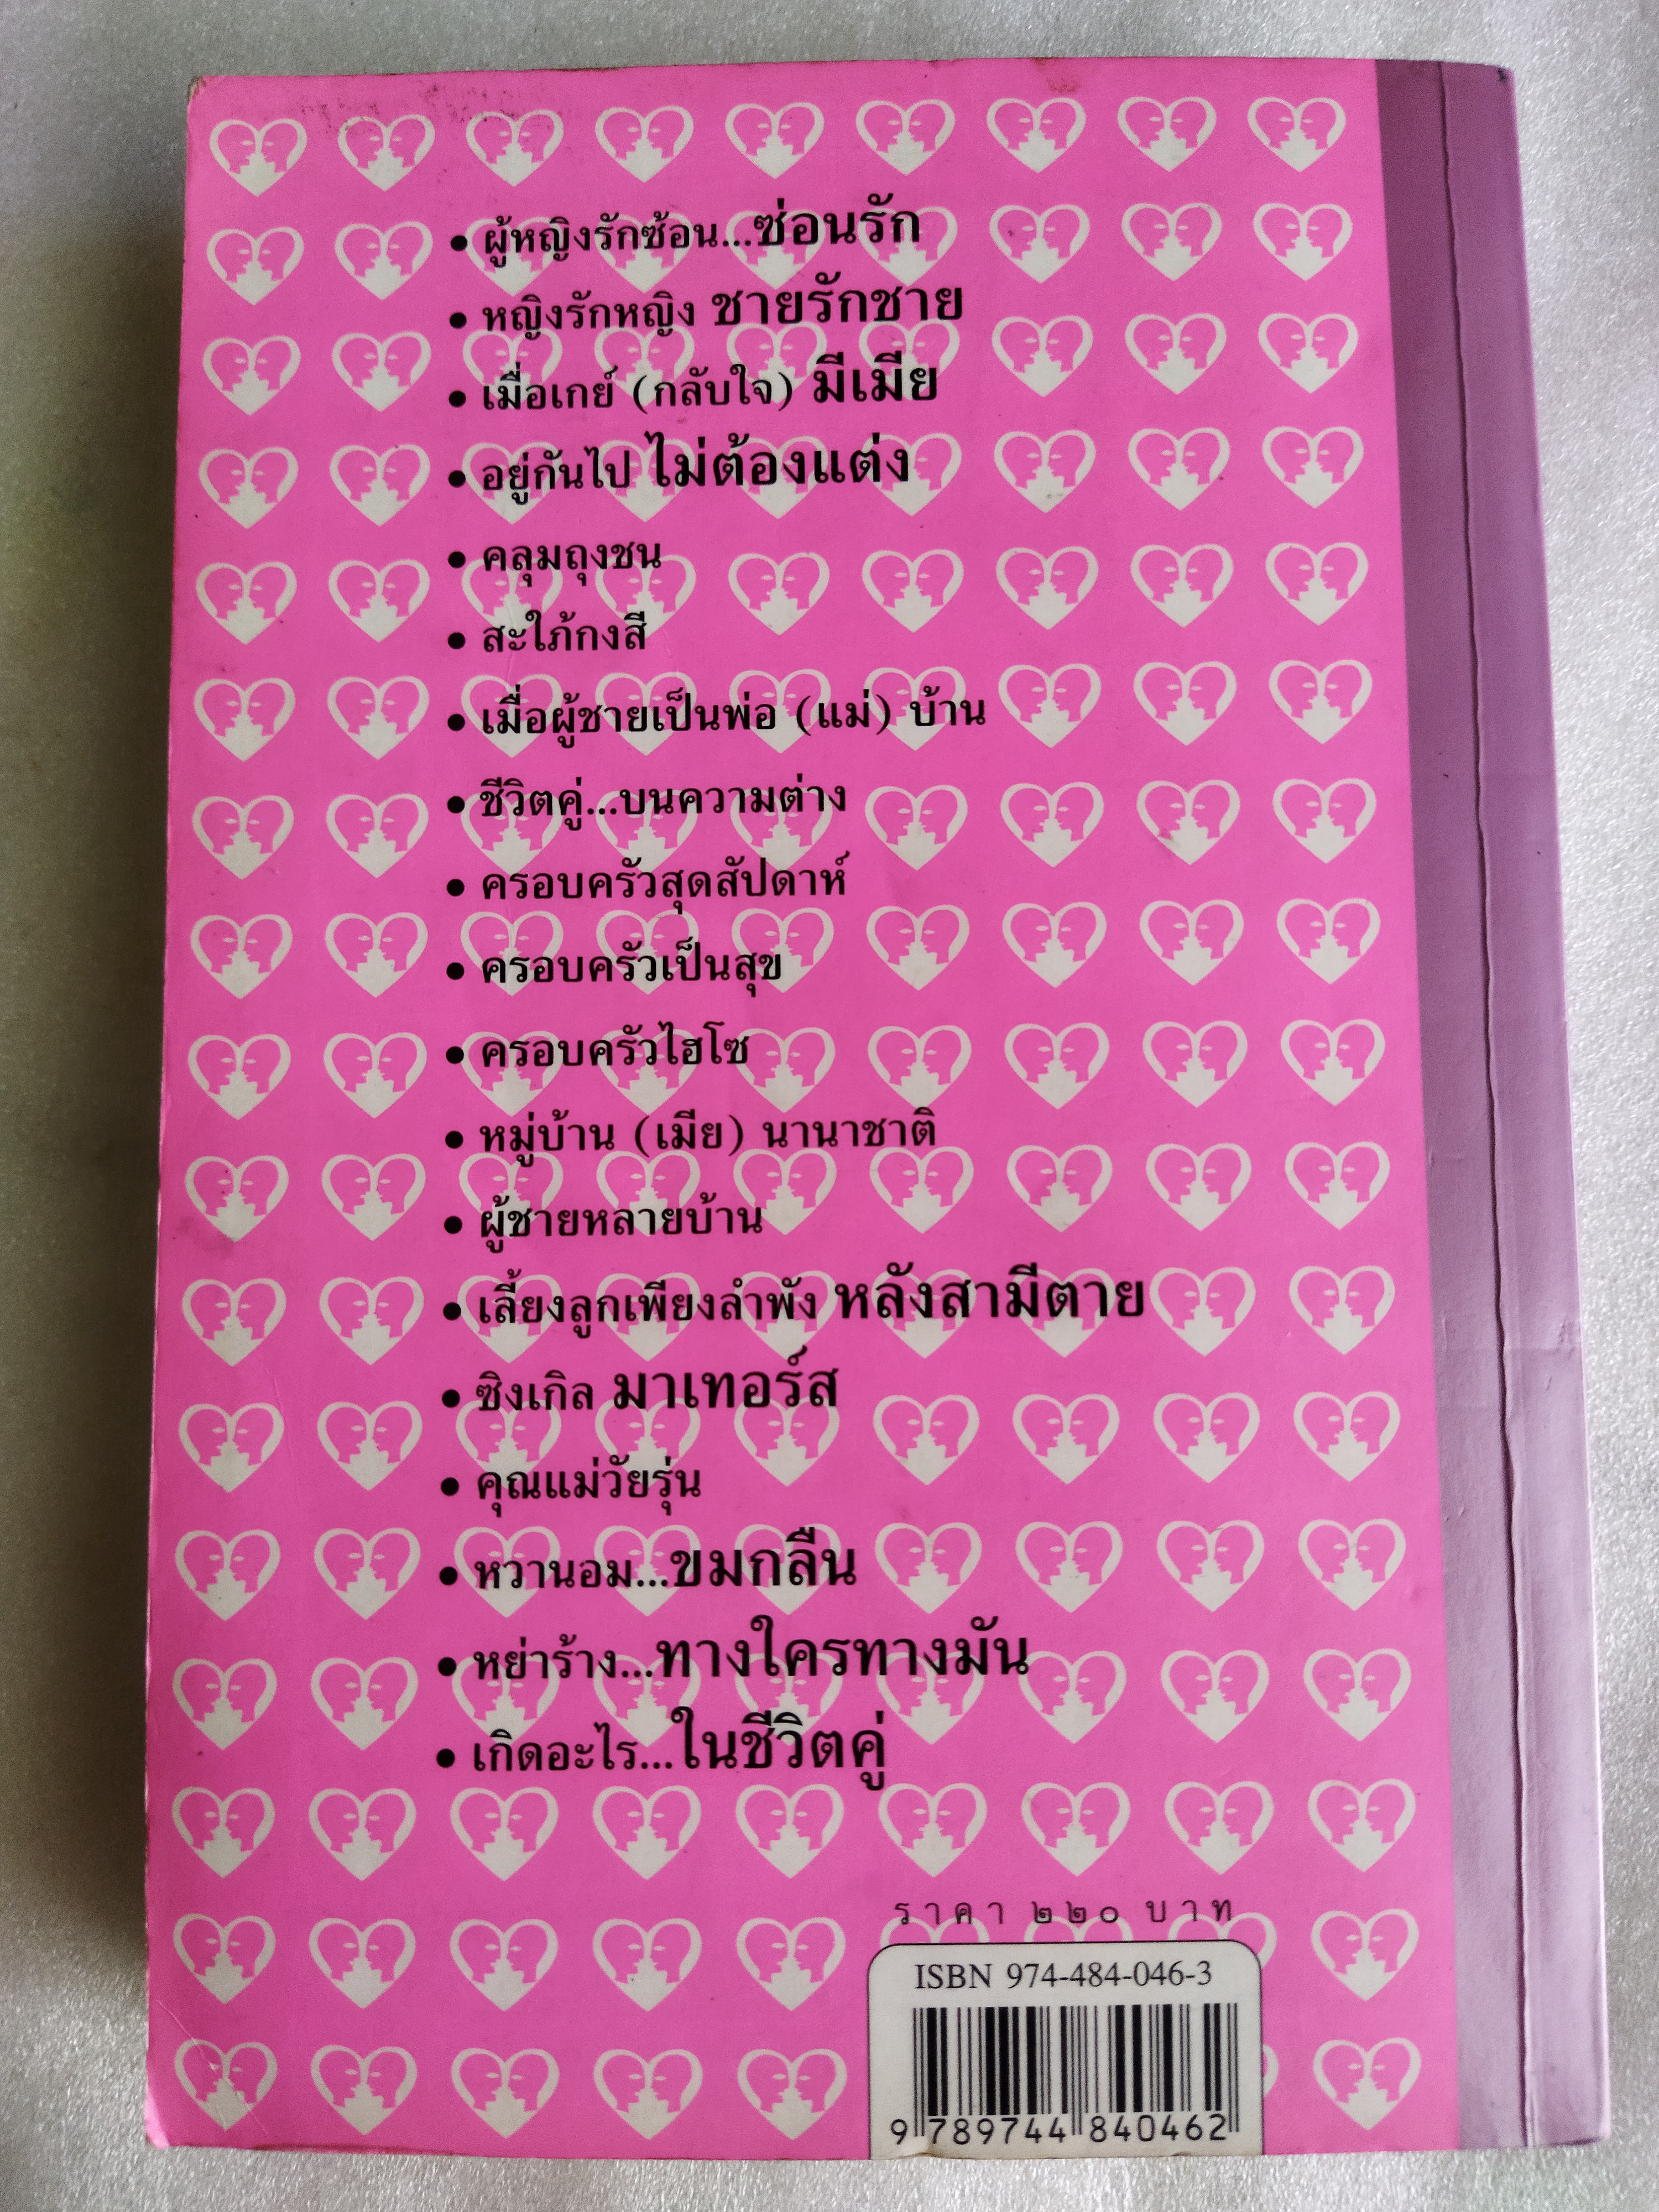 • ผู้หญิงรักซ้อน...ซ่อนรัก
• หญิงรักหญิง ชายรักชาย
• เมื่อเกย์ (กลับใจ) มีเมีย
• อยู่กันไป ไม่ต้องแต่ง
• คลุมถุงชน
• สะใภ้กงสี
• เมื่อผู้ชายเป็นพ่อ (แม่) บ้าน
• ชีวิตคู่...บนความต่าง
• ครอบครัวสุดสัปดาห์
• ครอบครัวเป็นสุข
• ครอบครัวไฮโซ
• หมู่บ้าน (เมีย) นานาชาติ
• ผู้ชายหลายบ้าน
• เลี้ยงลูกเพียงลำพัง หลังสามีตาย
• ซิงเกิล มาเทอร์ส
• คุณแม่วัยรุ่น
• หวานอม...ขมกลืน
• หย่าร้าง...ทางใครทางมัน
• เกิดอะไร...ในชีวิตคู่
ราคา ๒๒๐ บาท
ISBN 974-484-046-3
9 789744 840462